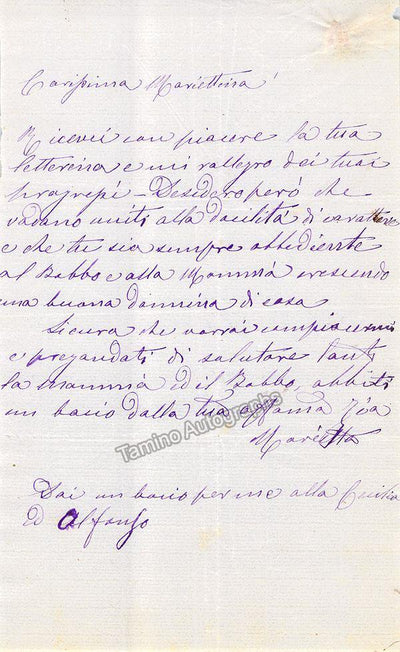 Carissima Mariettina!
Ricevei con piacere la tua
letterina e mi rallegro dei tuoi
progressi. Desidero però che
vadano uniti alla docilità di carattere
e che tu sia sempre obbediente
al Babbo e alla Mammà crescendo
una buona donnina di casa
Sicura che vorrai compiacermi
e pregandoti di salutare tanto
la mammà ed il Babbo, abbiti
un bacio dalla tua affma Zia
Marietta
Tamino Autographs
Dai un bacio per me alla Cecilia
Ed Alfonso